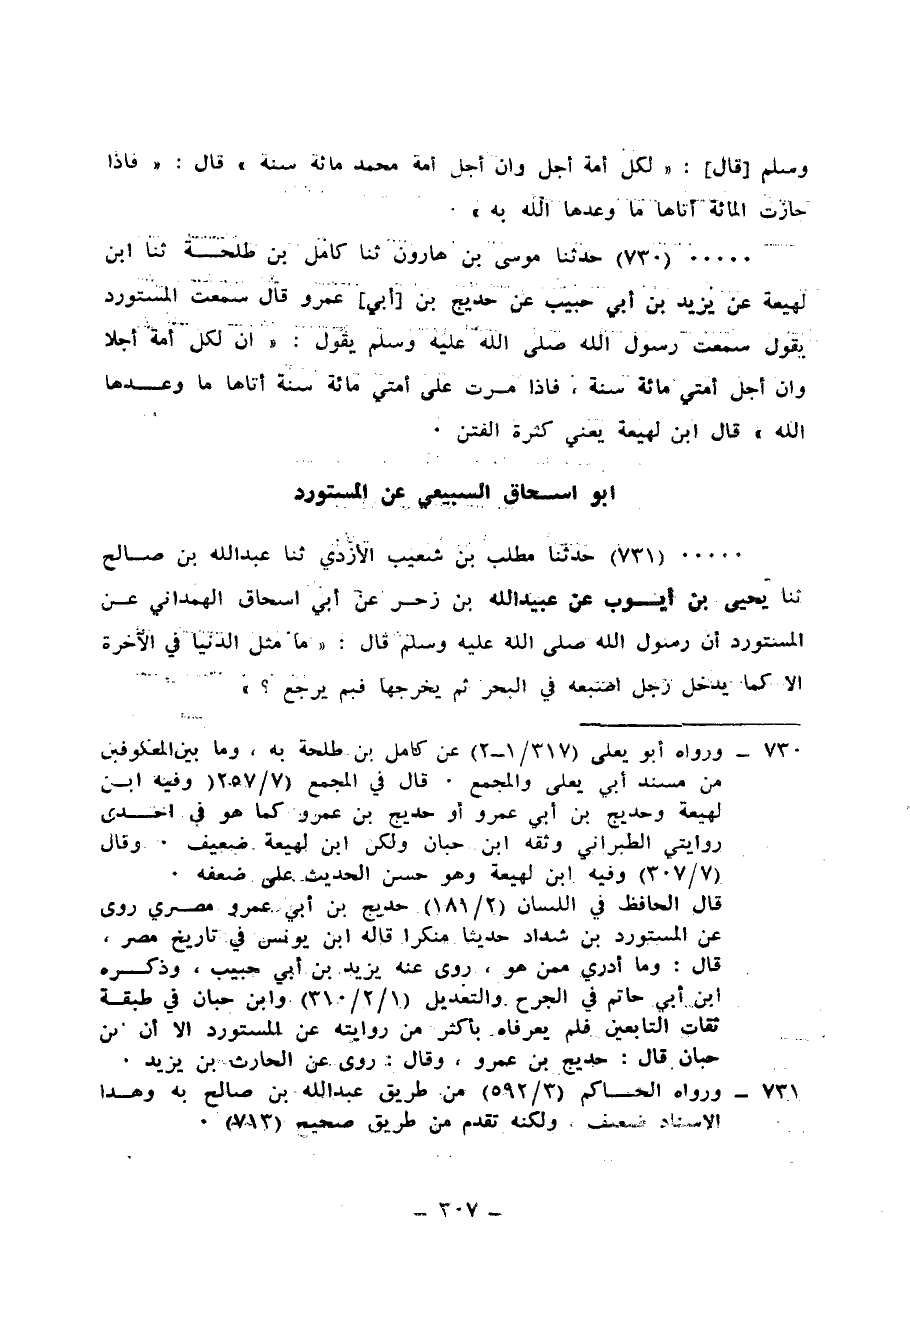 وسلم [قال] : « لكل أمة أجل وان أجل أمة محمد مائة سنة » قال : « فاذا
جازت المائة أتاها ما وعدها الله به » ٠
٠٠٠٠٠ (٧٣٠) حدثنا موسى بن هارون ثنا كامل بن طلحـــة ثنا ابن
لهيعة عن يزيد بن أبي حبيب عن حديج بن [أبي] عمرو قال سمعت المستورد
يقول سمعت رسول الله صلى الله عليه وسلم يقول : « ان لكل أمة أجلا
وان أجل أمتي مائة سنة ، فاذا مـرت على أمتي مائة سنة أتاها ما وعـــدها
الله » قال ابن لهيعة يعني كثرة الفتن ٠
ابو اسـحاق السبيعي عن المستورد
٠٠٠٠٠ (٧٣١) حدثنا مطلب بن شعيب الأزدي ثنا عبدالله بن صـالح
ثنا يحيى بن أيـوب عن عبيدالله بن زحـر عن أبي اسحاق الهمداني عـن
المستورد أن رسول الله صلى الله عليه وسلم قال : « ما مثل الدنيا في الآخرة
الا كما يدخل رجل اصبعه في البحر ثم يخرجها فبم يرجع ؟ »
٧٣٠ ـ ورواه أبو يعلى (٣١٧/ ١ـ٢) عن كامل بن طلحة به ، وما بين المعكوفين
من مسند أبي يعلى والمجمع ٠ قال في المجمع (٢٥٧/٧( وفيه ابـن
لهيعة وحديج بن أبي عمرو أو حديج بن عمرو كما هو في احـدى
روايتي الطبراني وثقه ابن حبان ولكن ابن لهيعة ضعيف ٠ وقال
(٣٠٧/٧) وفيه ابن لهيعة وهو حسن الحديث على ضعفه ٠
قال الحافظ في اللسان (١٨١/٢) حديج بن أبي عمرو مصـري روى
عن المستورد بن شداد حديثا منكرا قاله ابن يونس في تاريخ مصر ،
قال : وما أدري ممن هو ، روى عنه يزيد بن أبي حبيب ، وذكـره
ابن أبي حاتم في الجرح والتعديل (٣١٠/٢/١) وابن حبان في طبقة
ثقات التابعين فلم يعرفاه بأكثر من روايته عن المستورد الا أن بن
حبان قال : حديج بن عمرو ، وقال : روى عن الحارث بن يزيد ٠
٧٣١ ـ ورواه الحـاكم (٥٩٢/٣) من طريق عبدالله بن صالح به وهـذا
الاسناد ضعيف ، ولكنه تقدم من طريق صحيح (٧١٣) ٠
ـ ٣٠٧ ـ